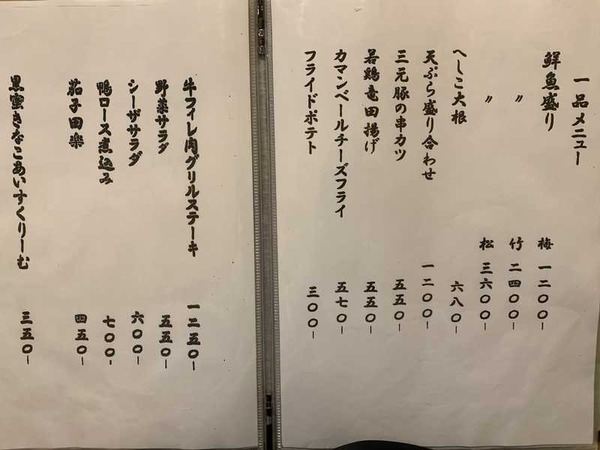 一品メニュー
鮮魚盛り 梅 一二〇〇-
〃 竹 二四〇〇-
〃 松 三六〇〇-
へしこ大根 六八〇-
天ぷら盛り合わせ 一二〇〇-
三元豚の串カツ 五五〇-
若鶏竜田揚げ 五五〇-
カマンベールチーズフライ 五七〇-
フライドポテト 三〇〇-
牛フィレ肉グリルステーキ 一二五〇-
野菜サラダ 五五〇-
シーザサラダ 六〇〇-
鴨ロース煮込み 七〇〇-
茄子田楽 四五〇-
黒蜜きなこあいすくりーむ 三五〇-